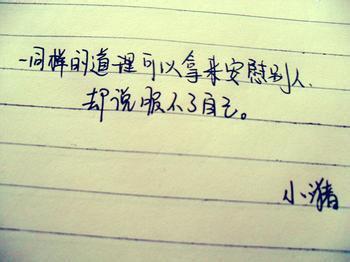 一同样的道理可以拿来安慰别人、
却说服不了自己。
小猪